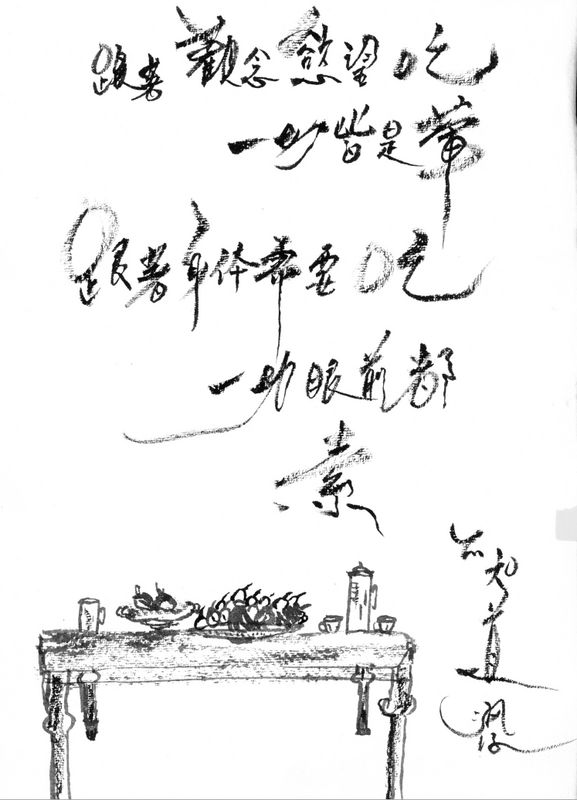 跟著觀念慾望吃
一切皆是葷
跟著身体需要吃
一切眼前都
素